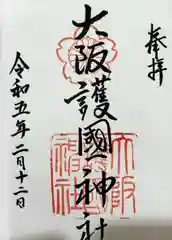 奉拝
大阪護國神社
令和五年二月十二日
大阪
護國
神社